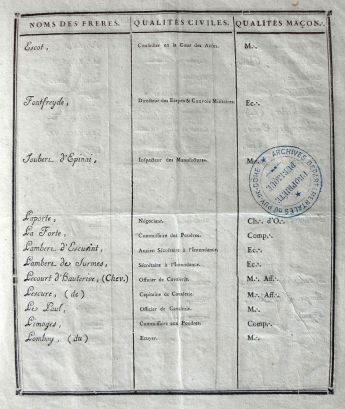 NOMS DES FRERES. QUALITÉS CIVILES. QUALITÉS MAÇON∴
Escot, Conseiller en la Cour des Aides. M∴
Fontfreyde, Directeur des Etapes & Convois Militaires. Ec∴
Joubert d'Epinai, Inspecteur des Manufactures. M∴
ARCHIVES DEPARTEMENTALES DU PUY-DE-DOME
PROPRIÉTÉ PUBLIQUE
Laporte, Négociant. Ch∴ d'O∴
La Forte, Commissaire des Poudres. Comp∴
Lambert Ancien Sécrétaire à l'Intendance. Ec∴
Lambert des Sarmes, Sécrétaire à l'Intendance. Ec∴
Lecourt d'Hauterive, (Chev.) Officier de Cavalerie. M∴ Aff∴
Lescure, (de) Capitaine de Cavalerie. M∴ Aff∴
Les Paul, Officier de Cavalerie. M∴
Limoges, Commissaire aux Poudres. Comp∴
Lombay, (du) Ecuyer. M∴